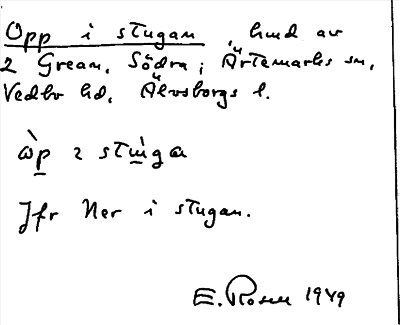 Opp i stugan, hmd av
2 Grean, Södra, i Ärtemarks sn,
Vedbo hd, Älvsborgs l.
òp ı stùga
Jfr Ner i stugan.
E. Rosen 1949